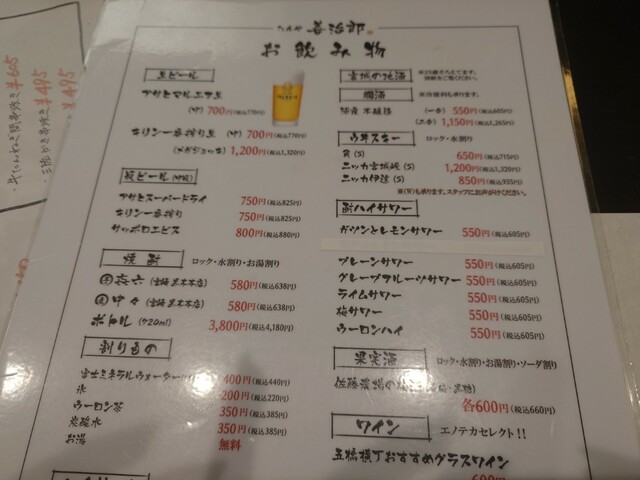 たんや 善治郎
お飲み物
生ビール
アサヒマルエフ生
(中) 700円(税込770円)
キリン一番搾り生 (中) 700円(税込770円)
(メガジョッキ) 1,200円(税込1,320円)
瓶ビール(中瓶)
アサヒスーパードライ 750円(税込825円)
キリン一番搾り 750円(税込825円)
サッポロエビス 800円(税込880円)
焼酎 ロック・水割り・お湯割り
580円(税込638円)
中々 580円(税込638円)
ボトル (720ml) 3,800円(税込4,180円)
割りもの
富士ミネラルウォーター 400円(税込440円)
氷 200円(税込220円)
ウーロン茶 350円(税込385円)
炭酸水 350円(税込385円)
お湯 無料
宮城の地酒
燗酒
(一合) 550円(税込605円)
(二合) 1,150円(税込1,265円)
ウヰスキー ロック・水割り
650円(税込715円)
ニッカ宮城峡 (S) 1,200円(税込1,320円)
ニッカ伊達 (S) 850円(税込935円)
も承ります。スタッフにお声がけください。
酎ハイサワー
ガツンとレモンサワー 550円(税込605円)
プレーンサワー 550円(税込605円)
グレープフルーツサワー 550円(税込605円)
ライムサワー 550円(税込605円)
梅サワー 550円(税込605円)
ウーロンハイ 550円(税込605円)
果実酒 ロック・水割り・お湯割り・ソーダ割り
佐藤農場の梅酒
各600円(税込660円)
ワイン エノテカセレクト!!
五橋横丁おすすめグラスワイン
¥605
¥495
¥495